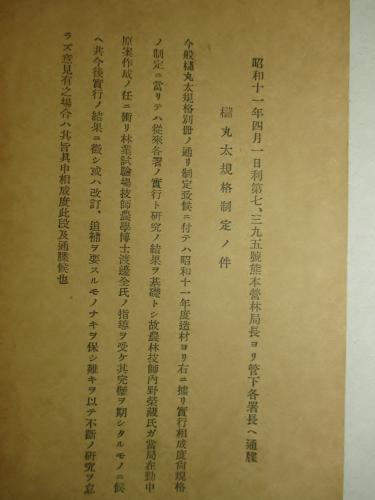 昭和十一年四月一日利第七、三九五號熊本營林局長ヨリ管下各署長ヘ通牒
櫧丸太規格制定ノ件
今般櫧丸太規格別册ノ通リ制定致候ニ付テハ昭和十一年度造材ヨリ右ニ據リ實行相成度尙規格
ノ制定ニ當リテハ從來各署ノ實行ト硏究ノ結果ヲ基礎トシ故農林技師內野榮藏氏ガ當局在勤中
原案作成ノ任ニ衝リ林業試驗場技師農學博士渡邊全氏ノ指導ヲ受ケ其完璧ヲ期シタルモノニ候
ヘ共今後實行ノ結果ニ徵シ或ハ改訂、追補ヲ要スルモノナキヲ保シ難キヲ以テ不斷ノ硏究ヲ怠
ラズ意見有之場合ハ其旨具申相成度此段及通牒候也